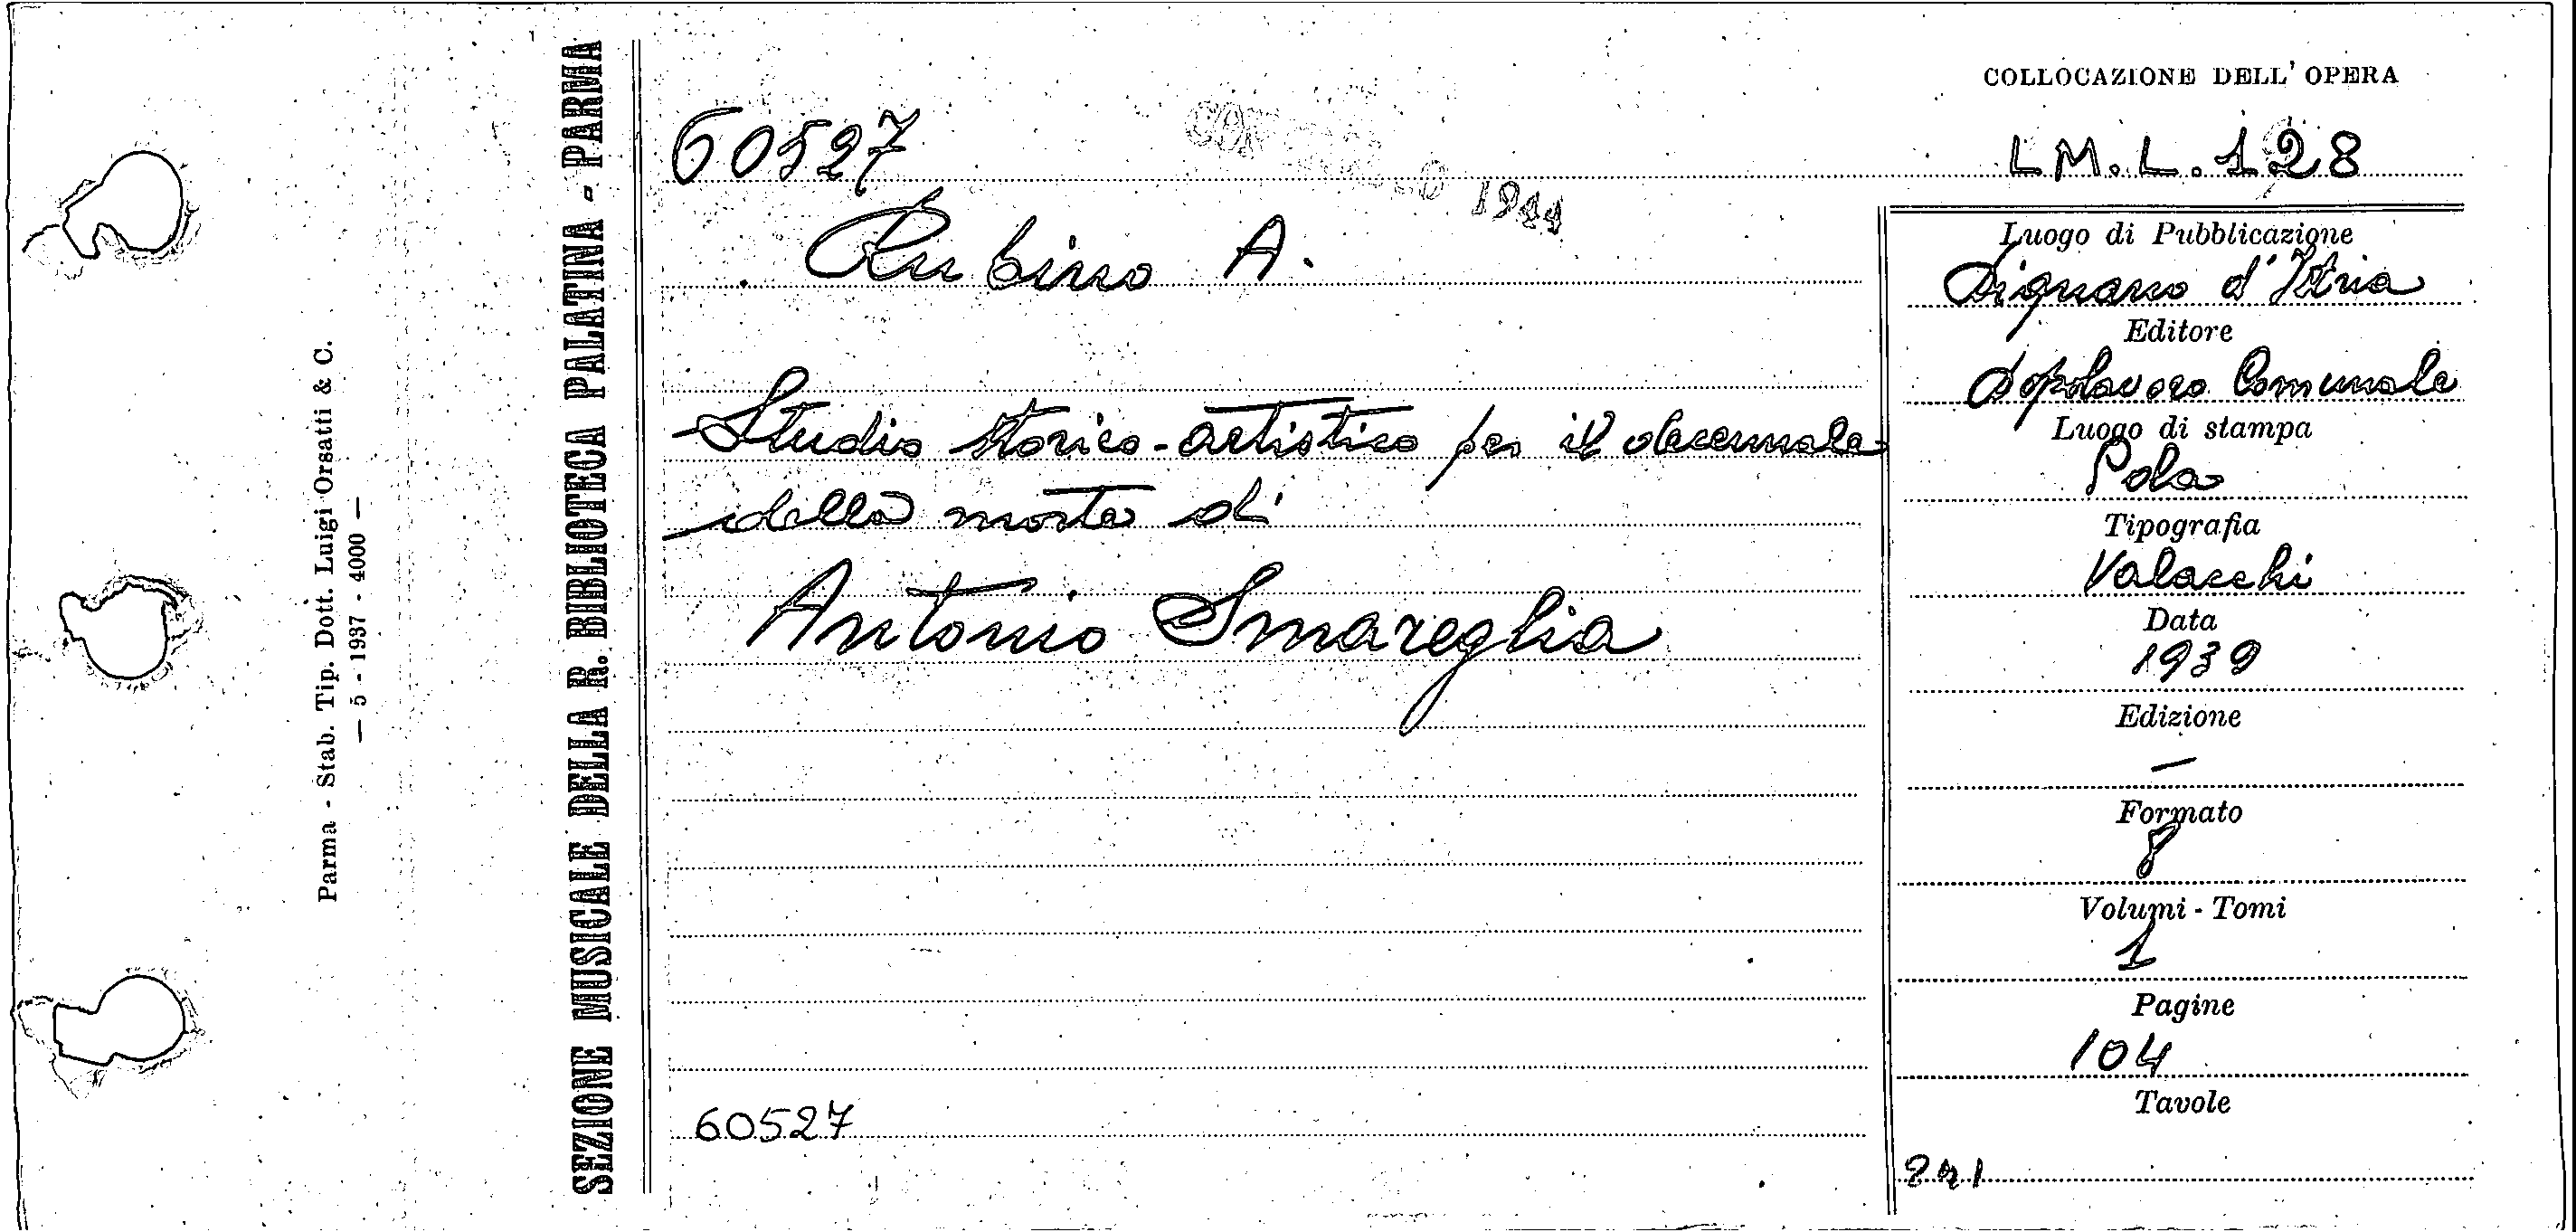 Parma - Stab. Tip. Dott. Luigi Orsatti & C.
— 5 - 1937 - 4000 —
SEZIONE MUSICALE DELLA R. BIBLIOTECA PALATINA - PARMA
60527
1944
Rubino A.
Studio storico-artistico per il decennale
della morte di
Antonio Smareglia
60527
COLLOCAZIONE DELL' OPERA
L M. L. 128
Luogo di Pubblicazione
Dignano d'Istria
Editore
Dopolavoro Comunale
Luogo di stampa
Pola
Tipografia
Valacchi
Data
1939
Edizione
—
Formato
8
Volumi - Tomi
1
Pagine
104
Tavole